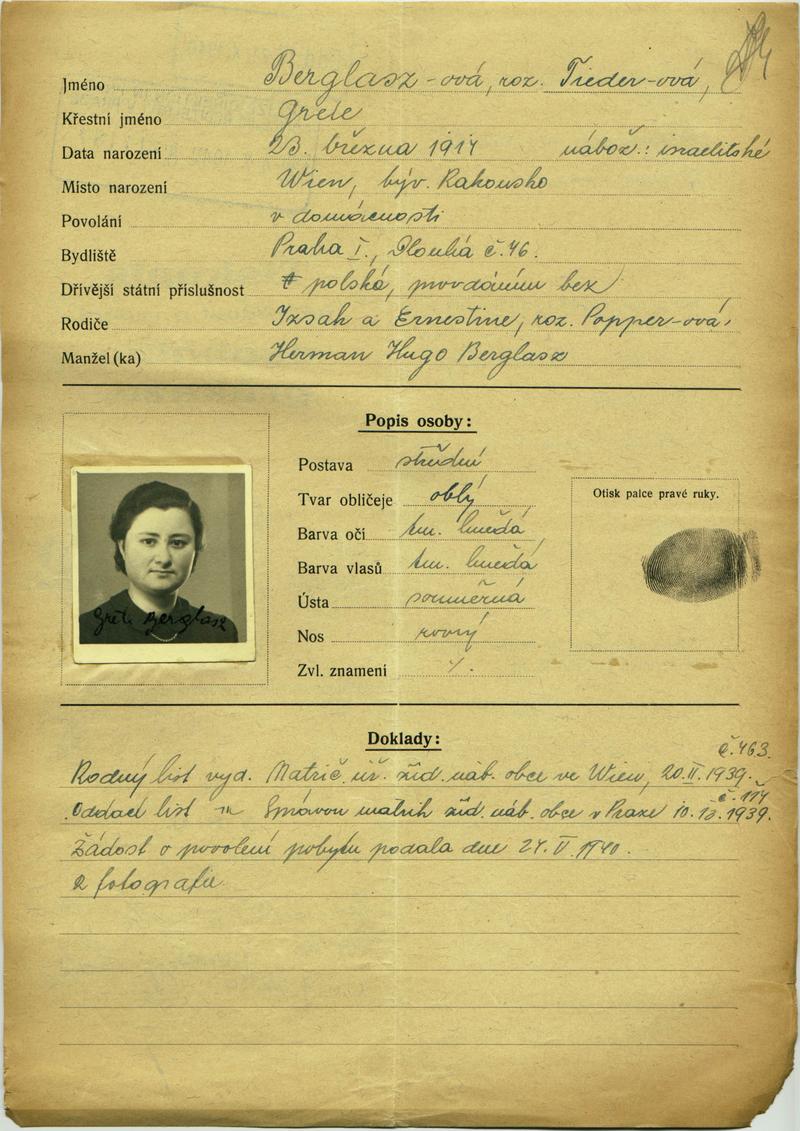 Jméno Berglasz-ová, roz. Tieder-ová,
Křestní jméno Grete
Data narození 23. března 1914 nábož.: israelitské
Místo narození Wien, býv. Rakousko
Povolání v domácnosti
Bydliště Praha I., Dlouhá č. 46.
Dřívější státní příslušnost polská, provdáním bez
Rodiče Izsak a Ernestine, roz. Popper-ová.
Manžel (ka) Herman Hugo Berglasz
Popis osoby:
Postava střední
Tvar obličeje oblý
Barva očí tm. hnědá
Barva vlasů tm. hnědá
Ústa souměrná
Nos rovný
Zvl. znamení
Otisk palce pravé ruky.
Grete Berglasz
Doklady:
č. 463.
Rodný list vyd. Matrič. úř. žid. náb. obce ve Wien, 20.II.1939.
č. 114
Oddací list Správou matrik žid. náb. obce v Praze 10.12.1939.
Žádost o povolení pobytu podala dne 24. V. 1940.
2 fotografie